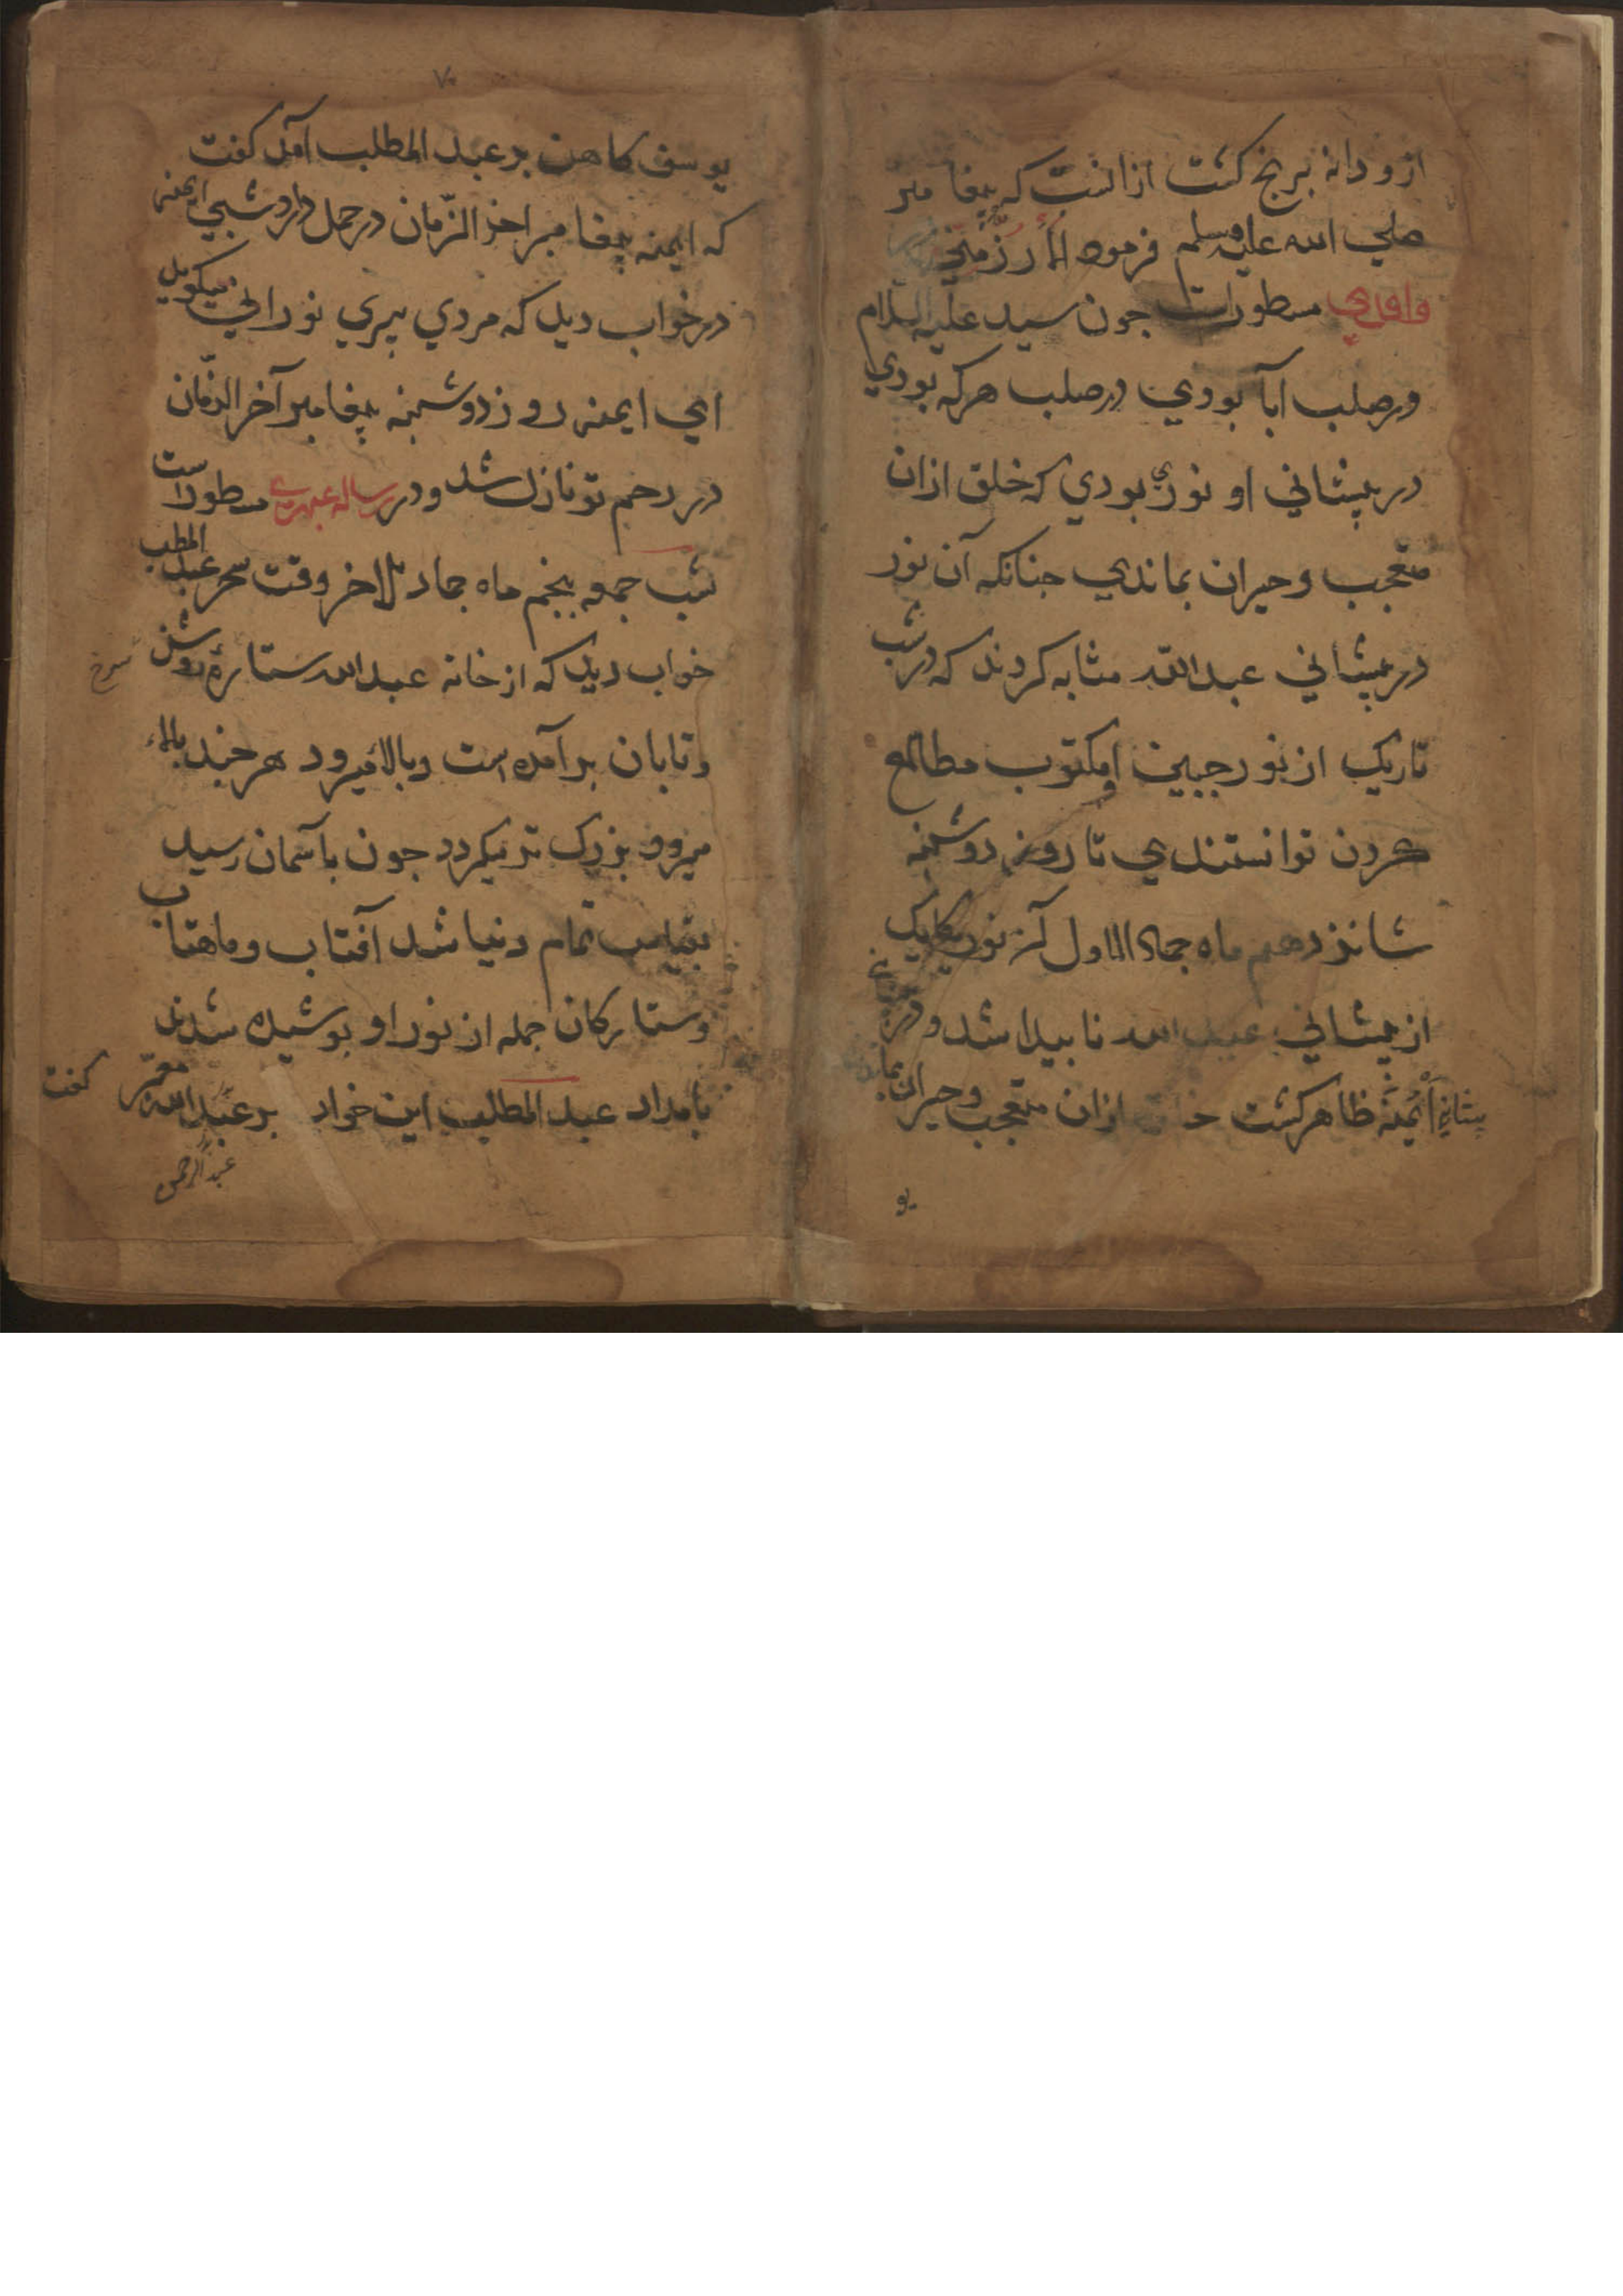 ازو دانه برنج کشت ازانست که پیغامبر
صلي الله علیه وسلم فرموده الأرز مني
مسطوراست جون سید علیه السلام
در صلب ابا بودي در صلب هرکه بودي
در پیشاني او نوري بودي که خلق ازان
متعجب و حیران بماندي جنانکه آن نور
در پیشاني عبدالله مشابه کردند که در شب
تاریک از نور جبین او مکتوب مطالع
کردن توانستندي تا روز دوشنبه
شانزدهم ماه جماد الاول آن نور یکایک
از پیشاني عبد الله نابیدا شد و در
پیشاني ایمنه ظاهر کشت خلق ازان متعجب و حیران بماند
یو
۷
یوسف کاهن بر عبد المطلب آمد کفت
که ایمنه پیغامبر اخر الزمان در حمل دارد شبي ایمنه
در خواب دید که مردي پیري نوراني میکوید
اي ایمنه روز دوشنبه پیغامبر آخر الزمان
در رحم تو نازل شد و در رساله مسطوراست
شب جمعه پنجم ماه جماد الاخر وقت سحر عبد المطلب
خواب دید که از خانه عبدالله ستاره روشن
سرخ
و تابان بر آمده است و بالا میرود هر جند بالا
میرود بزرک تر میکردد جون بآسمان رسید
تمام دنیا شد آفتاب و ماهتاب
و ستارکان جمله از نور او پوشیده شدند
بامداد عبد المطلب این خواب بر عبدالله معبر کفت
عبدالرحمن